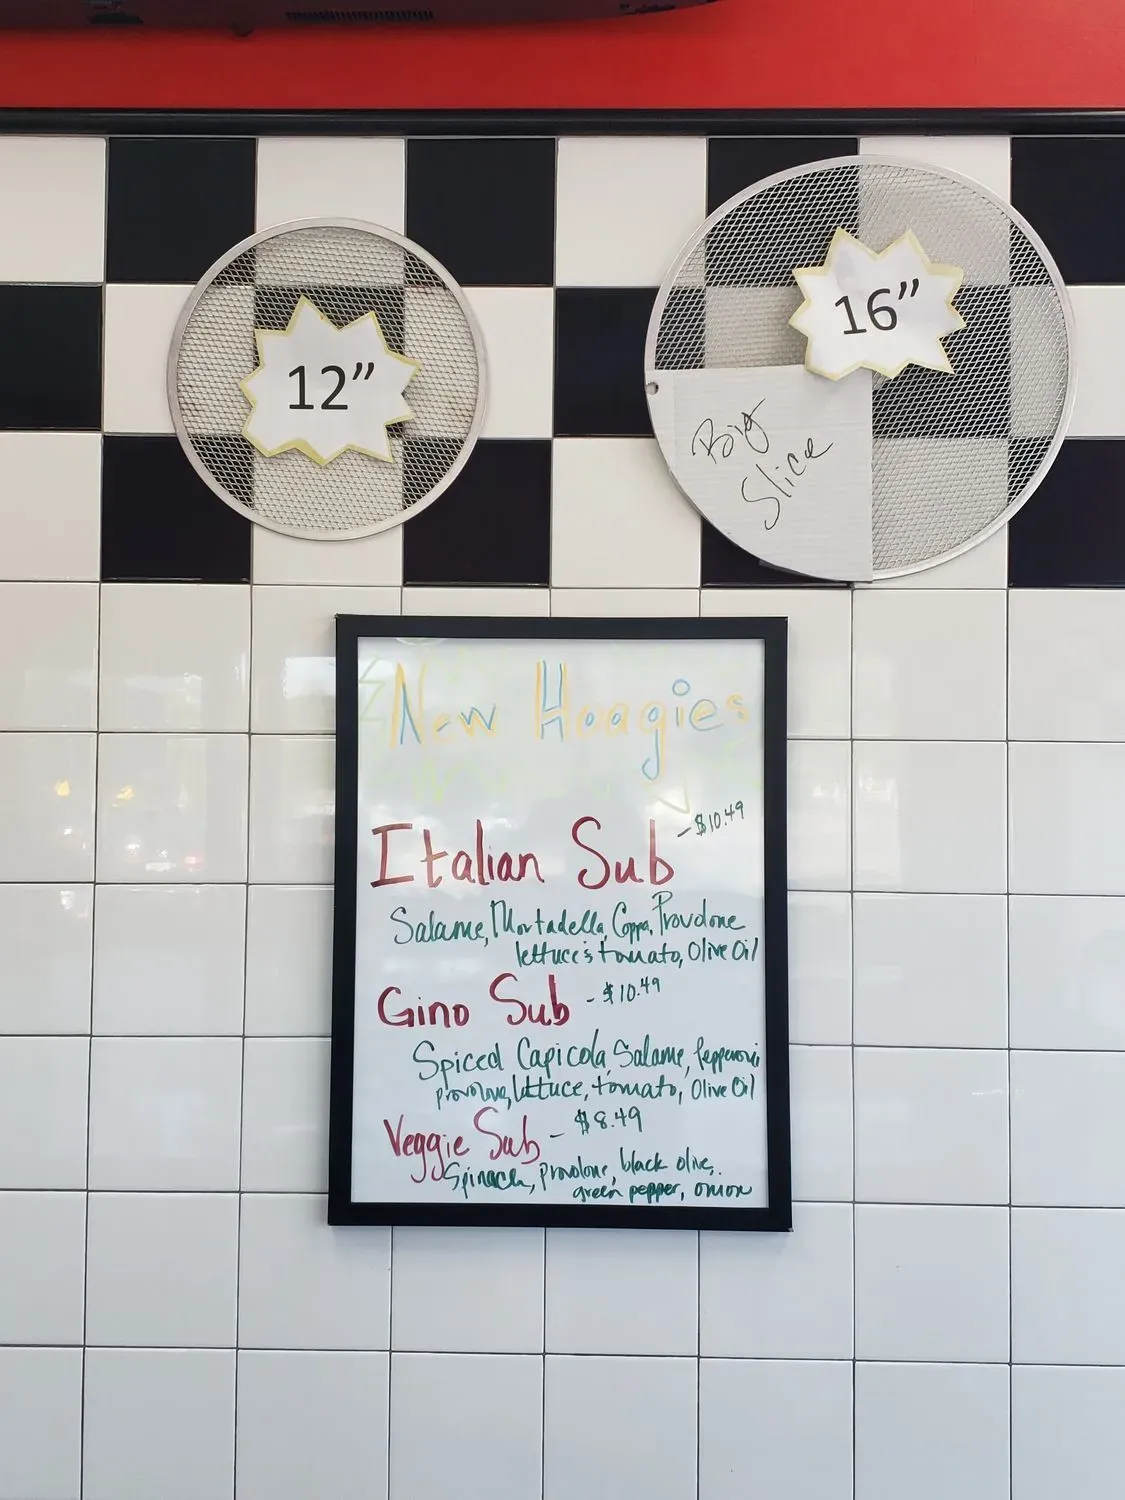 12”
16”
Big
Slice
New Hoagies
Italian Sub
- $10.49
Salame, Mortadella, Coppa, Provolone
lettuce, tomato, Olive Oil
Gino Sub - $10.49
Spiced Capicola, Salame, Pepperoni
provolone, lettuce, tomato, Olive Oil
Veggie Sub - $8.49
Spinach, provolone, black olive,
green pepper, onion